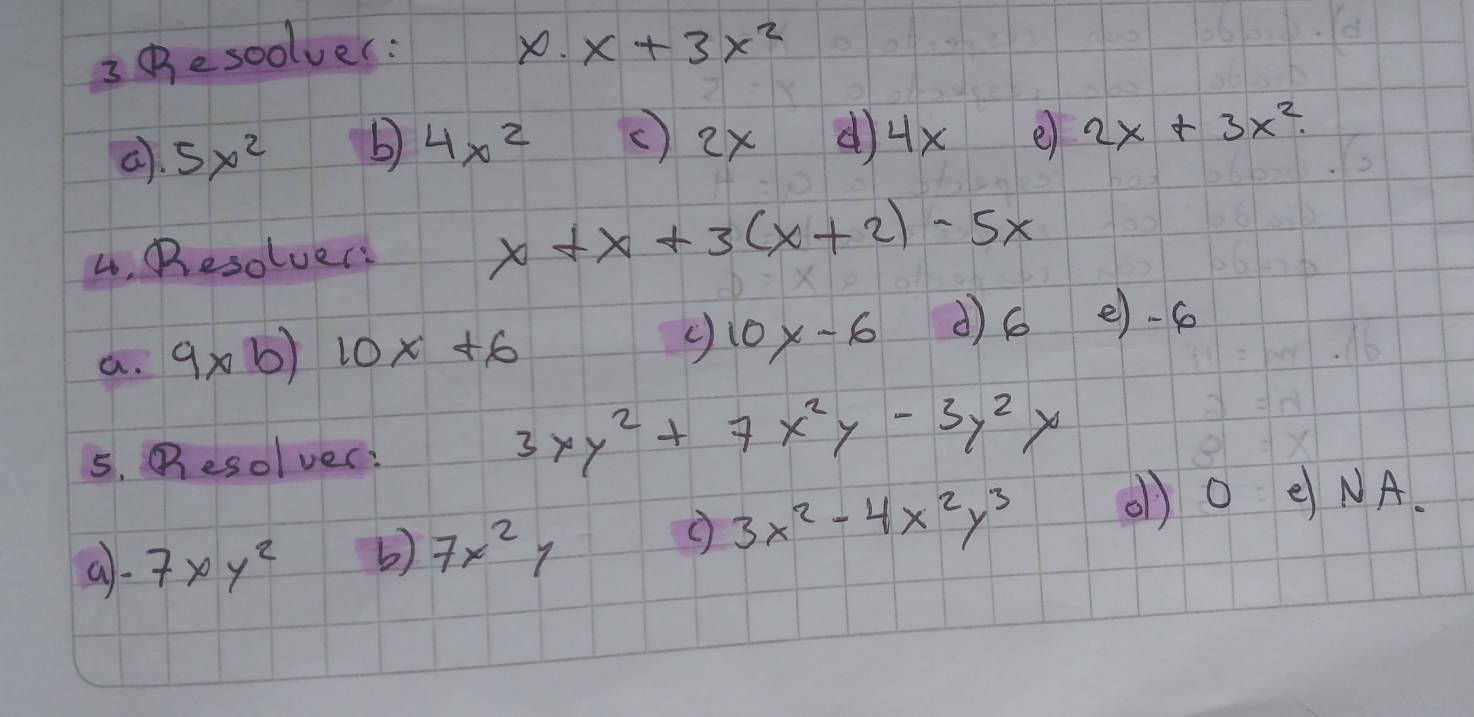 3 Resoolver: x . x + 3x²
a). 5x² b) 4x² c) 2x d) 4x e) 2x + 3x².
4. Resolver: x + x + 3(x + 2) - 5x
a. 9x b) 10x + 6 c) 10x - 6 d) 6 e) -6
5. Resolver: 3xy² + 7x²y - 3y²x
a)- 7xy² b) 7x²y c) 3x² - 4x²y³ d) 0 e) NA.